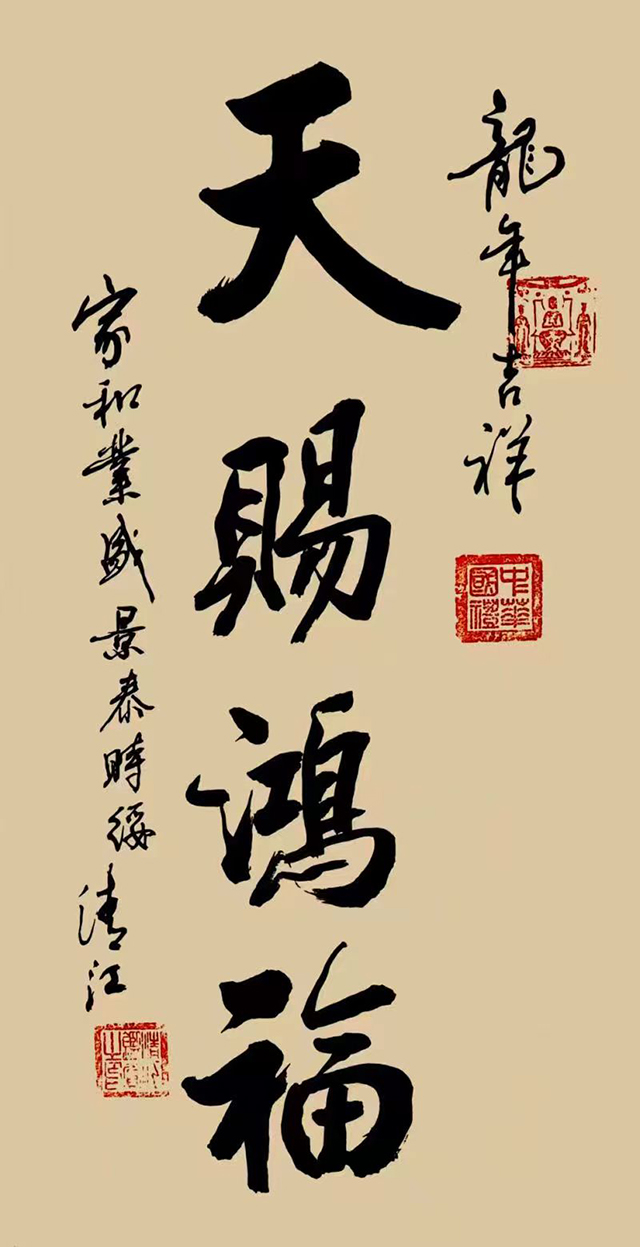 龍年吉祥
中華國禮
天賜鴻福
家和業盛景泰時綏清江